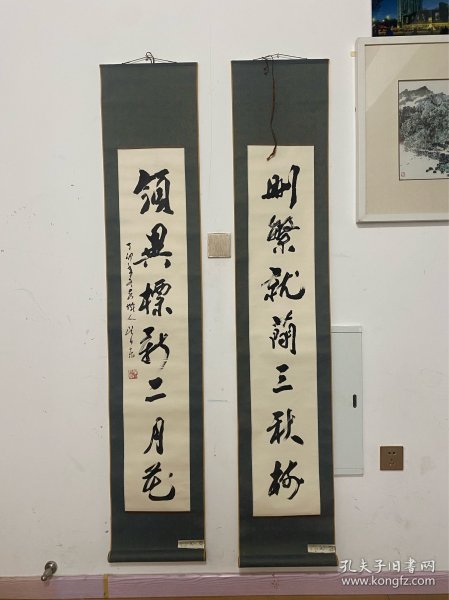 刪繁就蕳三秋樹
領異標新二月花
丁卯年
孔夫子旧书网
www.kongfz.com